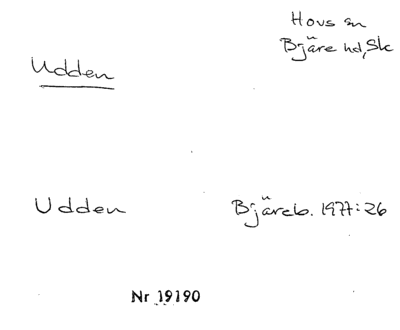 Hovs sn
Bjäre hd, Sk
Udden
Udden Bjäreb. 1977:26
Nr 19190